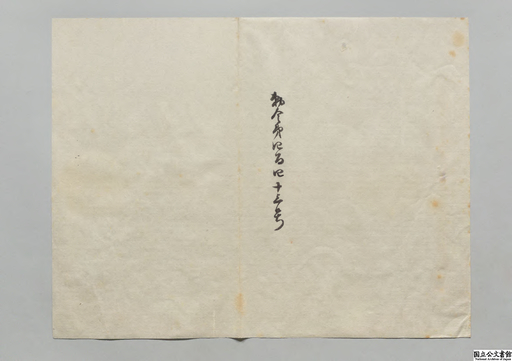 勅令第四百四十三号
国立公文書館
National Archives of Japan